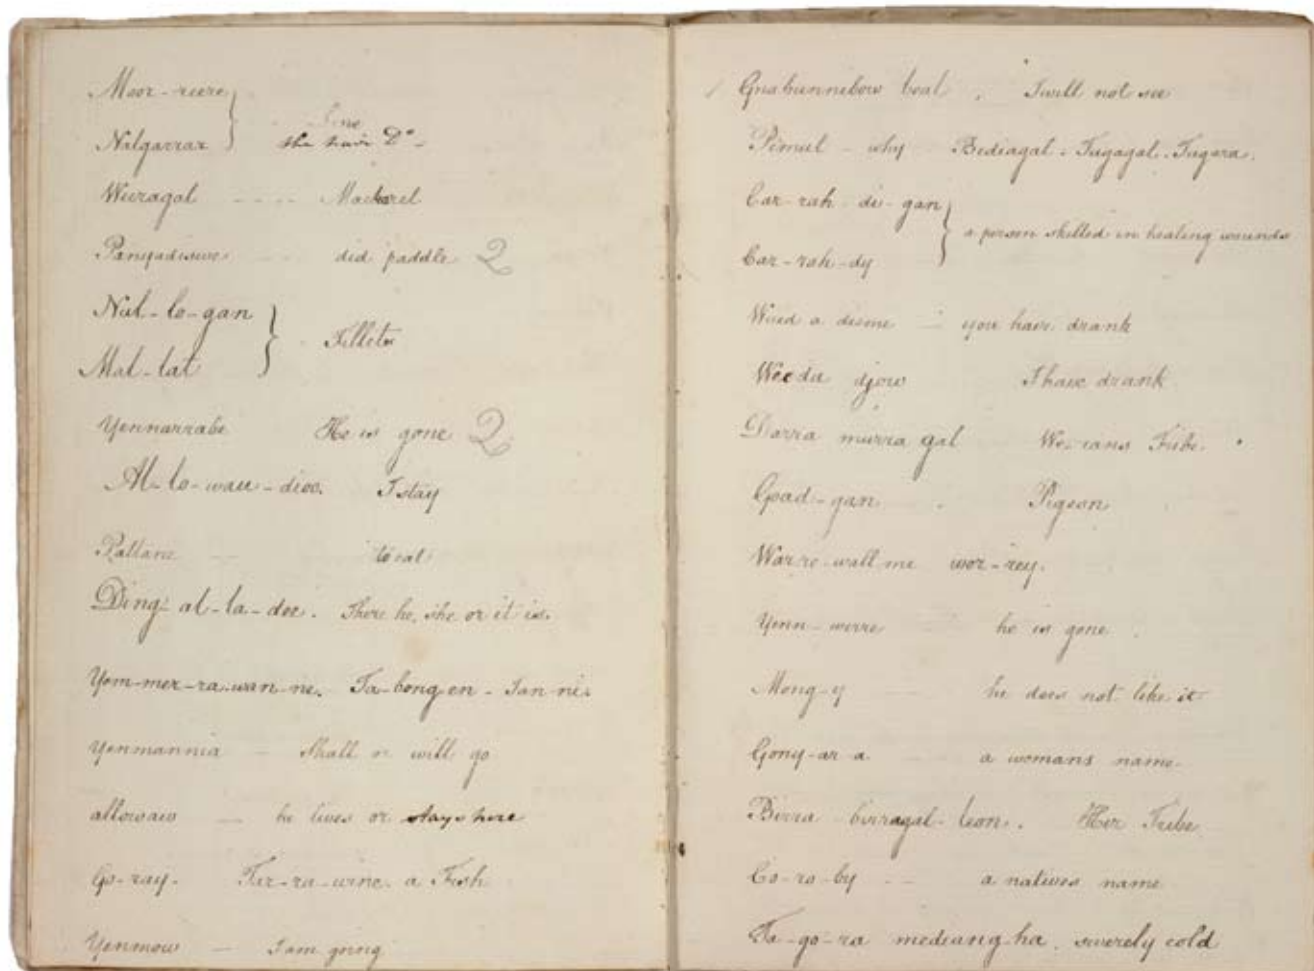 Moor-reere
Nalgarrar the hair Do-
Weeragal ---- Mackarel
Pangadieme did paddle 2
Nul-lo-gan
Mal-lat Fillets
Yennarrabe He is gone 2
Al-lo-wau-dioo. I stay
Pattane to eat
Ding-al-la-dee. There he, she or it is.
Yem-mer-ra-wan-ne. Ta-bong en-Jan-ne.
Yenmannia - Shall or will go
allowaw - he lives or stays here
Go-ray. Tar-ra-wine. a Fish
Yenmow - I am going
Gnabunnebow beal. I will not see
Pemul - why Bediagal. Tugagal. Tugara.
Car-rah-di-gan
Car-rah-dy a person skilled in healing wounds
Weed a deeme - you have drank
Weeda djow I have drank
Darra murra gal We-rans Tribe.
Goad-gan - Pigeon
Warre-wall me wor-rey.
Yenn-werre he is gone.
Mong-y he does not like it
Gony-ar a a womans name-
Birra birragal-leon. Her Tribe
Co-ro-by -- a natives name
Ta-go-ra mediang ha. severely cold